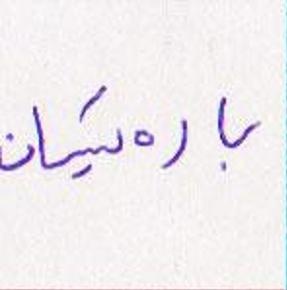 بارەکیان